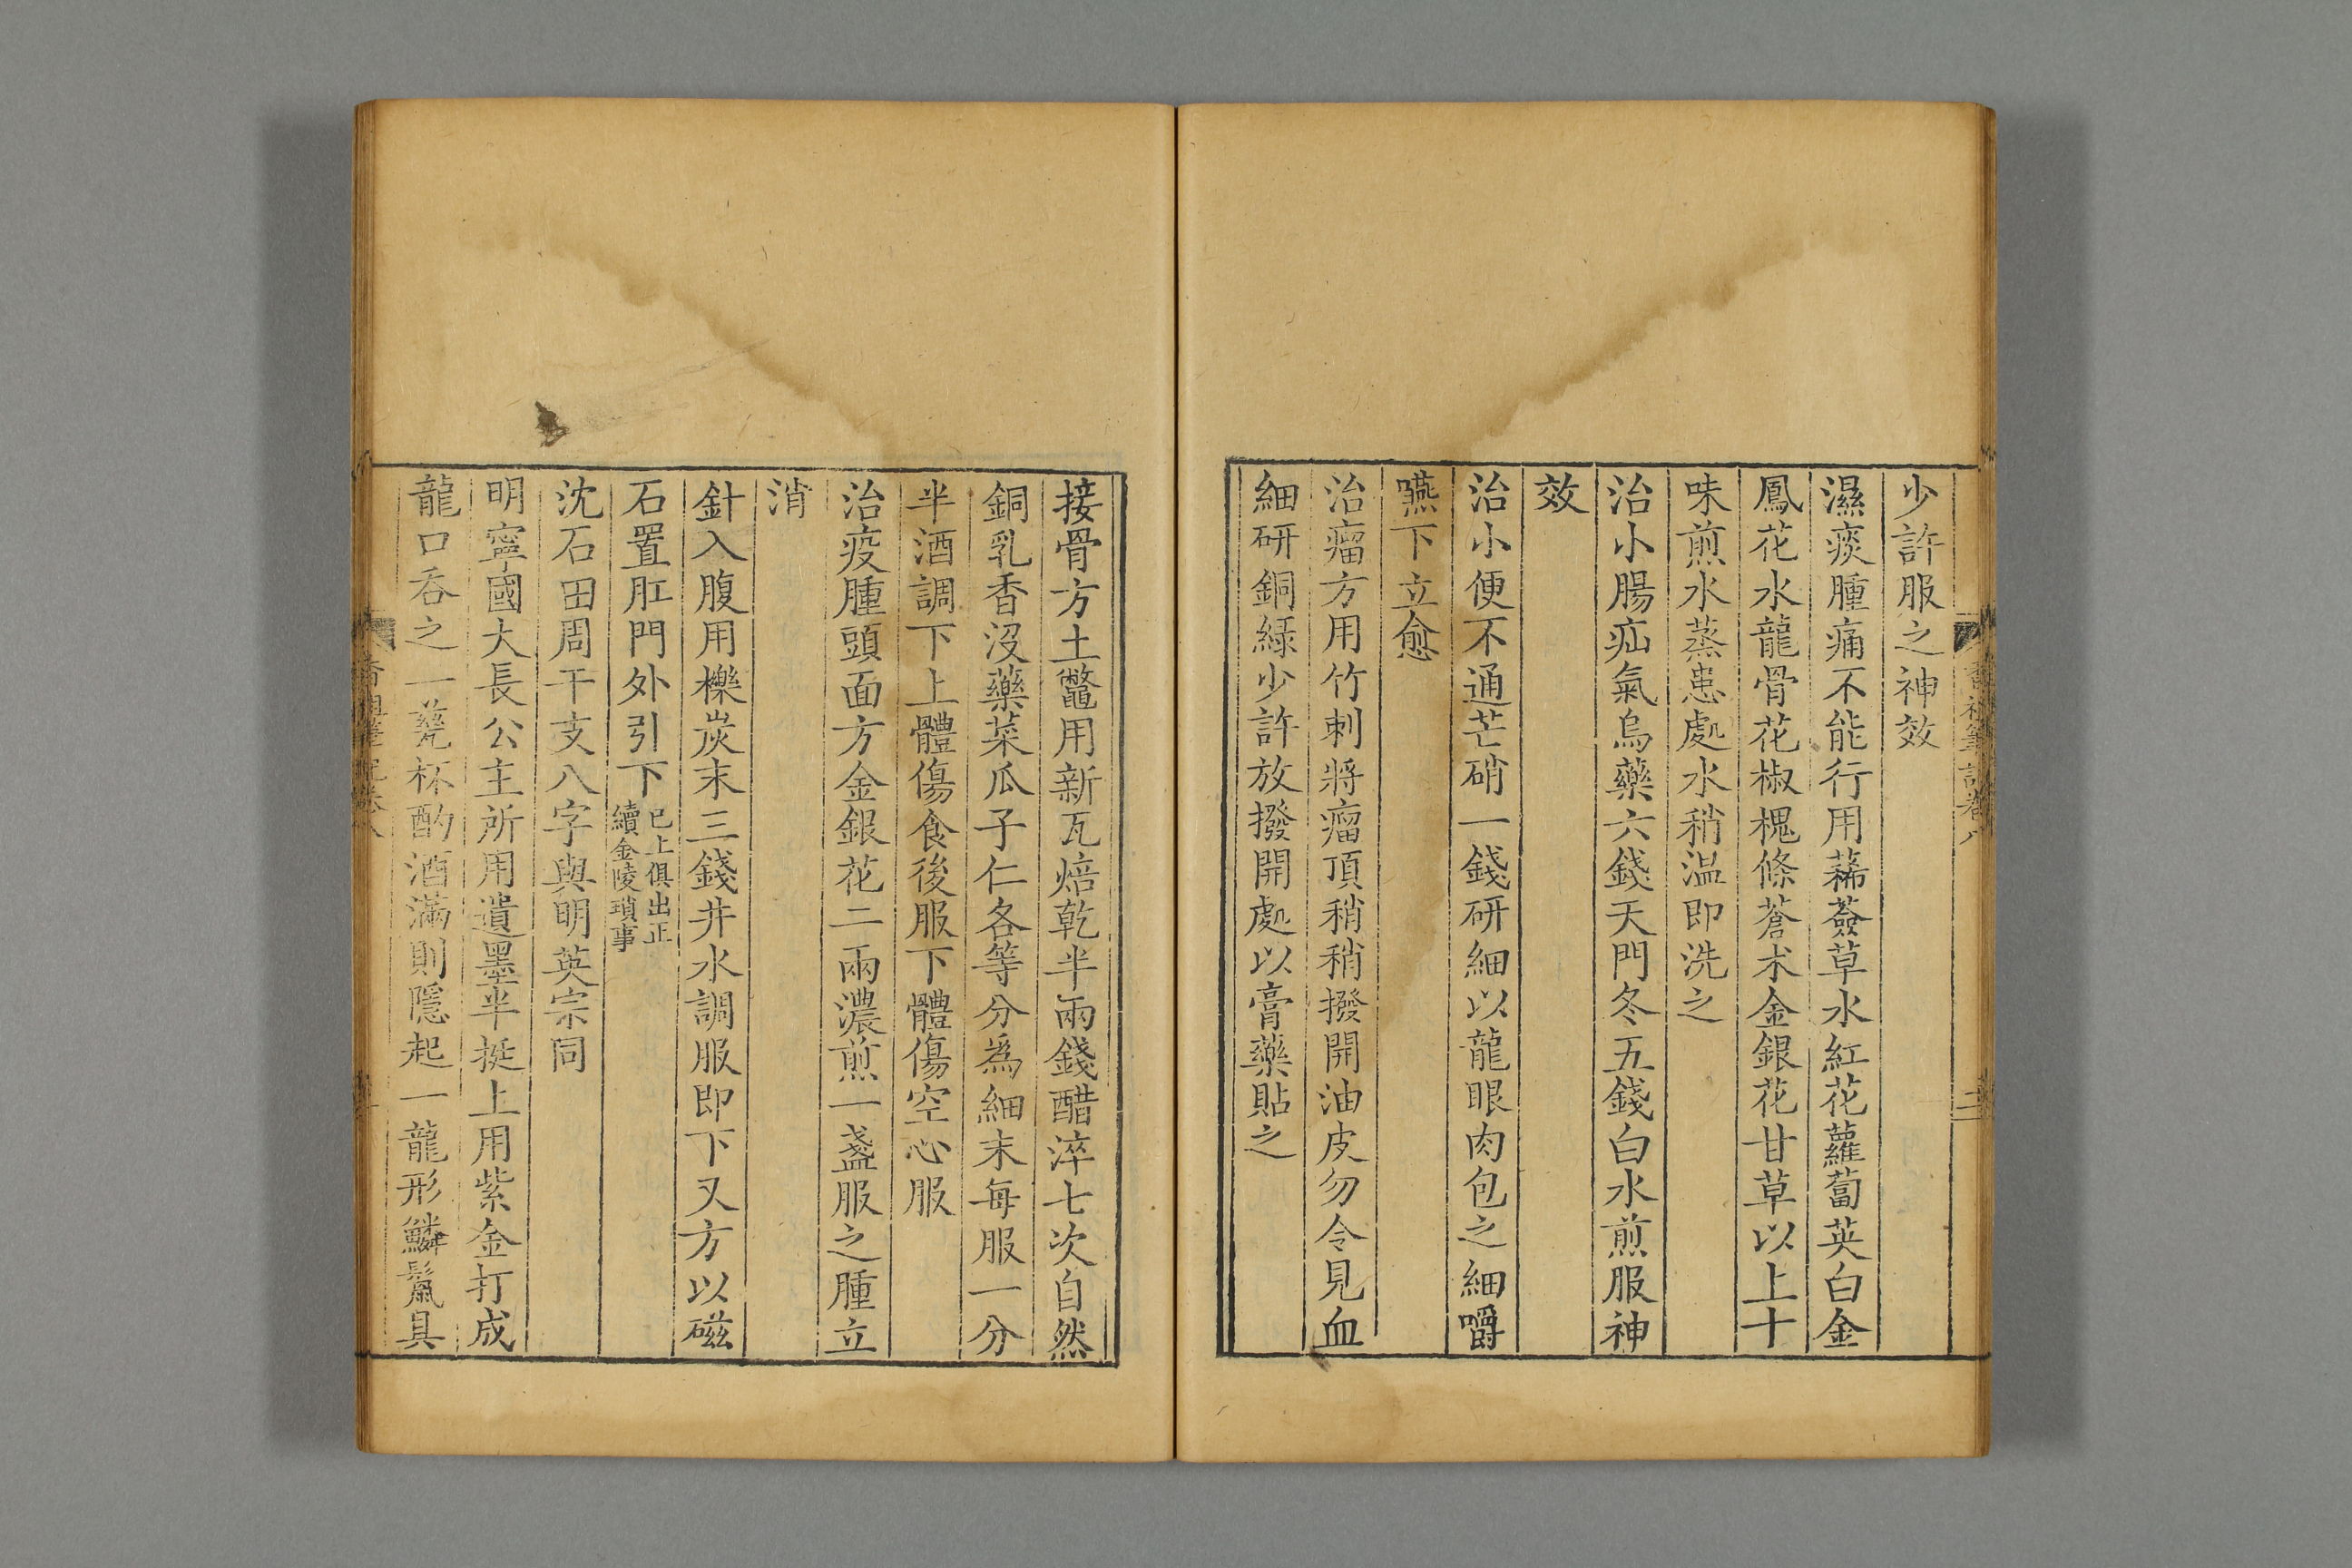 少許服之神效
濕痰腫痛不能行用蓨薟草水紅花蘿蔔英白金
鳳花水龍骨花椒槐條蒼术金銀花甘草以上十
味煎水蒸患處水稍溫即洗之
治小腸疝氣烏藥六錢天門冬五錢白水煎服神
效
治小便不通芒硝一錢研細以龍眼肉包之細嚼
嚥下立愈
治瘤方用竹刺將瘤頂稍稍撥開油皮勿令見血
細研銅綠少許放撥開處以膏藥貼之
接骨方土鼈用新瓦焙乾半兩錢醋淬七次自然
銅乳香沒藥菜瓜子仁各等分爲細末每服一分
半酒調下上體傷食後服下體傷空心服
治疫腫頭面方金銀花二兩濃煎一盞服之腫立
消
針入腹用櫟炭末三錢井水調服即下又方以磁
石置肛門外引下已上俱出正續金陵瑣事
沈石田周干支八字與明英宗同
明寧國大長公主所用遺墨半挺上用紫金打成
龍口吞之一甆杯酌酒滿則隱起一龍形鱗鬣具